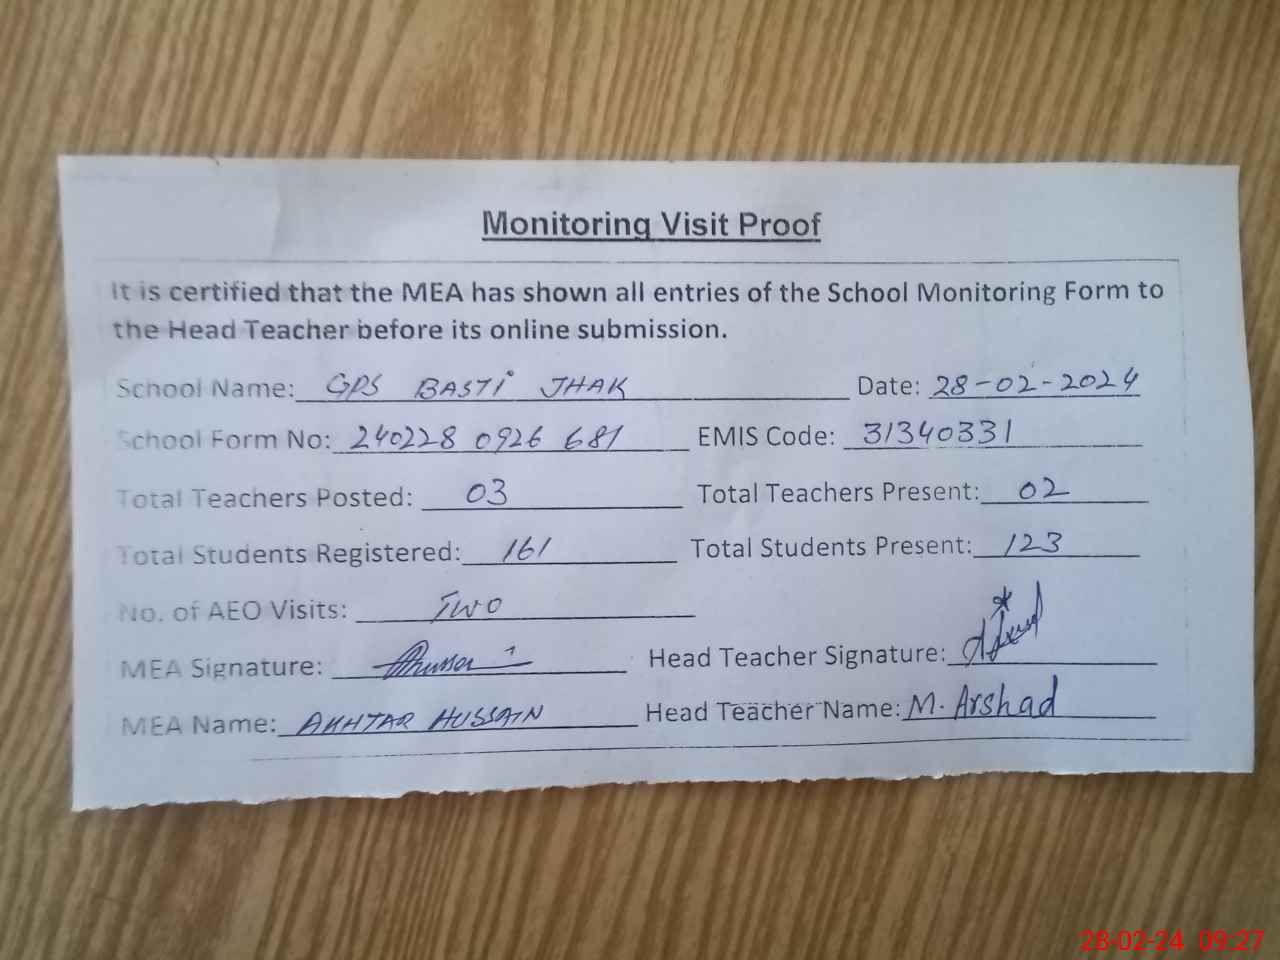 Monitoring Visit Proof
It is certified that the MEA has shown all entries of the School Monitoring Form to
the Head Teacher before its online submission.
School Name: GPS BASTI JHAK Date: 28-02-2024
School Form No: 240228 0926 681 EMIS Code: 31340331
Total Teachers Posted: 03 Total Teachers Present: 02
Total Students Registered: 161 Total Students Present: 123
No. of AEO Visits: TWO
MEA Signature: Head Teacher Signature:
MEA Name: AKHTAR HUSSAIN Head Teacher Name: M. Arshad
28-02-24 09:27